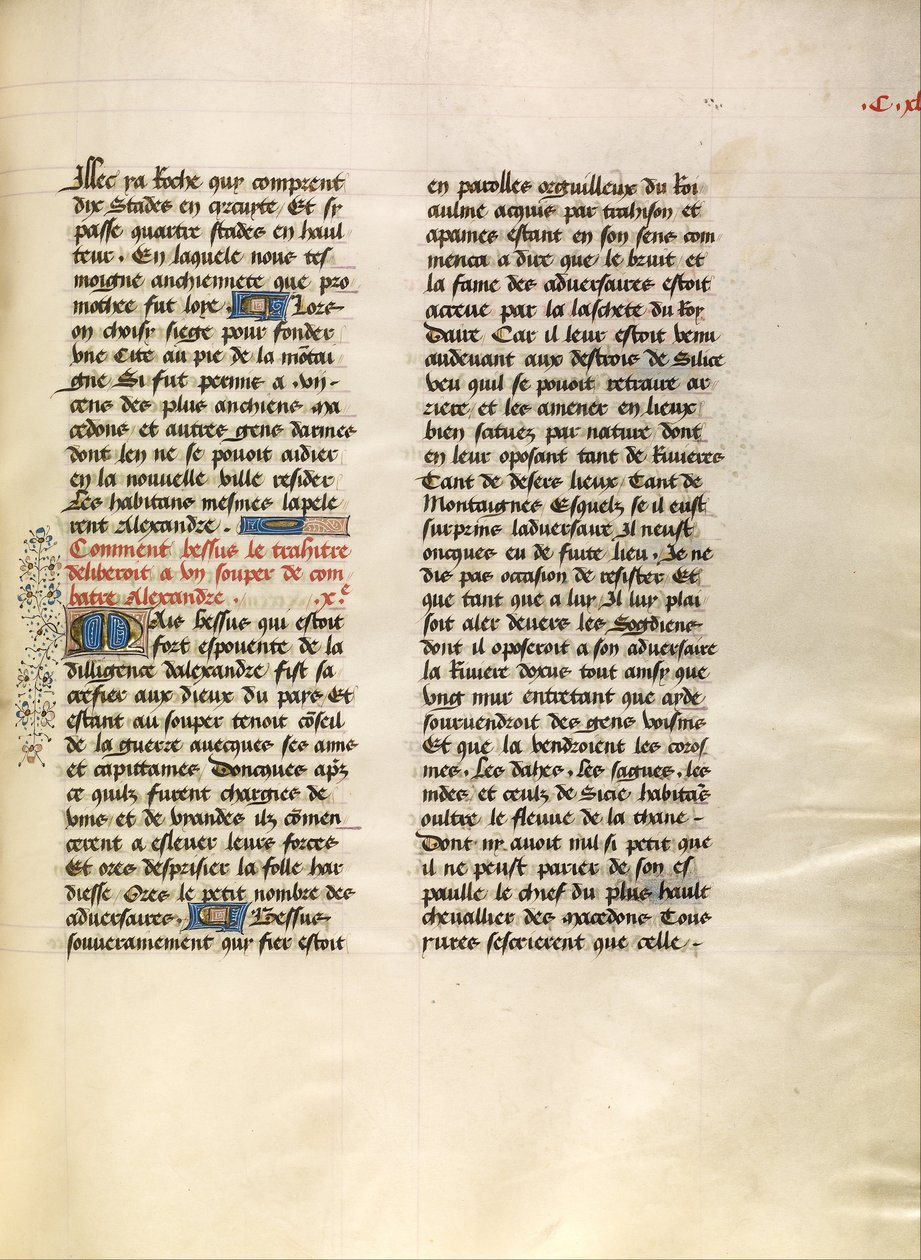 .C.xl
Illec ya Roche quy comprent
dix Stades en cyrcuyte Et sy
passe quattre stades en haul
teur. En laquele nous tes
moigne anchiennete que pro
mothee fut loye. Lors
on choisy siege pour fonder
vne Cite au pie de la mõtai
gne Si fut permis a .vij.
cens des plus anchiens ma
cedons et autres gens darmes
dont len ne se pouoit aidier
en la nouuelle ville resider
Les habitans mesmes lapele
rent Alexandre.
Comment bessus le trahitre
deliberoit a vn souper de com
batre Alexandre. .x.e
Mais bessus qui estoit
fort espouente de la
dilligence dalexandre fist sa
crefier aux dieux du pays Et
estant au souper tenoit cõseil
de la guerre auecques ses amis
et capittaines Doncques apz̃
ce quilz furent chargies de
vins et de vyandes ilz cõmen
cerent a esleuer leurs forces
Et ores desprisier la folle har
diesse Ores le petit nombre des
aduersaires. Bessus
souuerainement quy fier estoit
en parolles orguilleux du Roi
aulme acquis par trahison et
apaines estant en son sens com
menca a dire que le bruit et
la fame des aduersaires estoit
acreue par la laschete du Roy
Daire Car il leur estoit venu
audeuant aux destrois de Silice
veu quil se pouoit retraire ar
riere et les amener en lieux
bien scituez par nature dont
en leur oposant tant de Riuieres
Tant de desers lieux Tant de
Montaignes Esquelz se il eust
surprins laduersaire Il neust
oncques eu de fuite lieu. Je ne
dis pas occasion de resister Et
que tant que a luy Il luy plai
soit aler deuers les Sogdiens
dont il oposeroit a son aduersaire
la Riuiere doxus tout ainsy que
vng mur entretant que ayde
souruendroit des gens voisins
Et que la vendroient les coros
mes. Les dahes. Les sagues. les
indes et ceulz de Sicie habitãs
oultre le fleuue de la thane
Dont ny auoit nul si petit que
il ne peust parier de son es
paulle le chief du plus hault
cheuallier des macedons Tous
yures sescrierent que celle